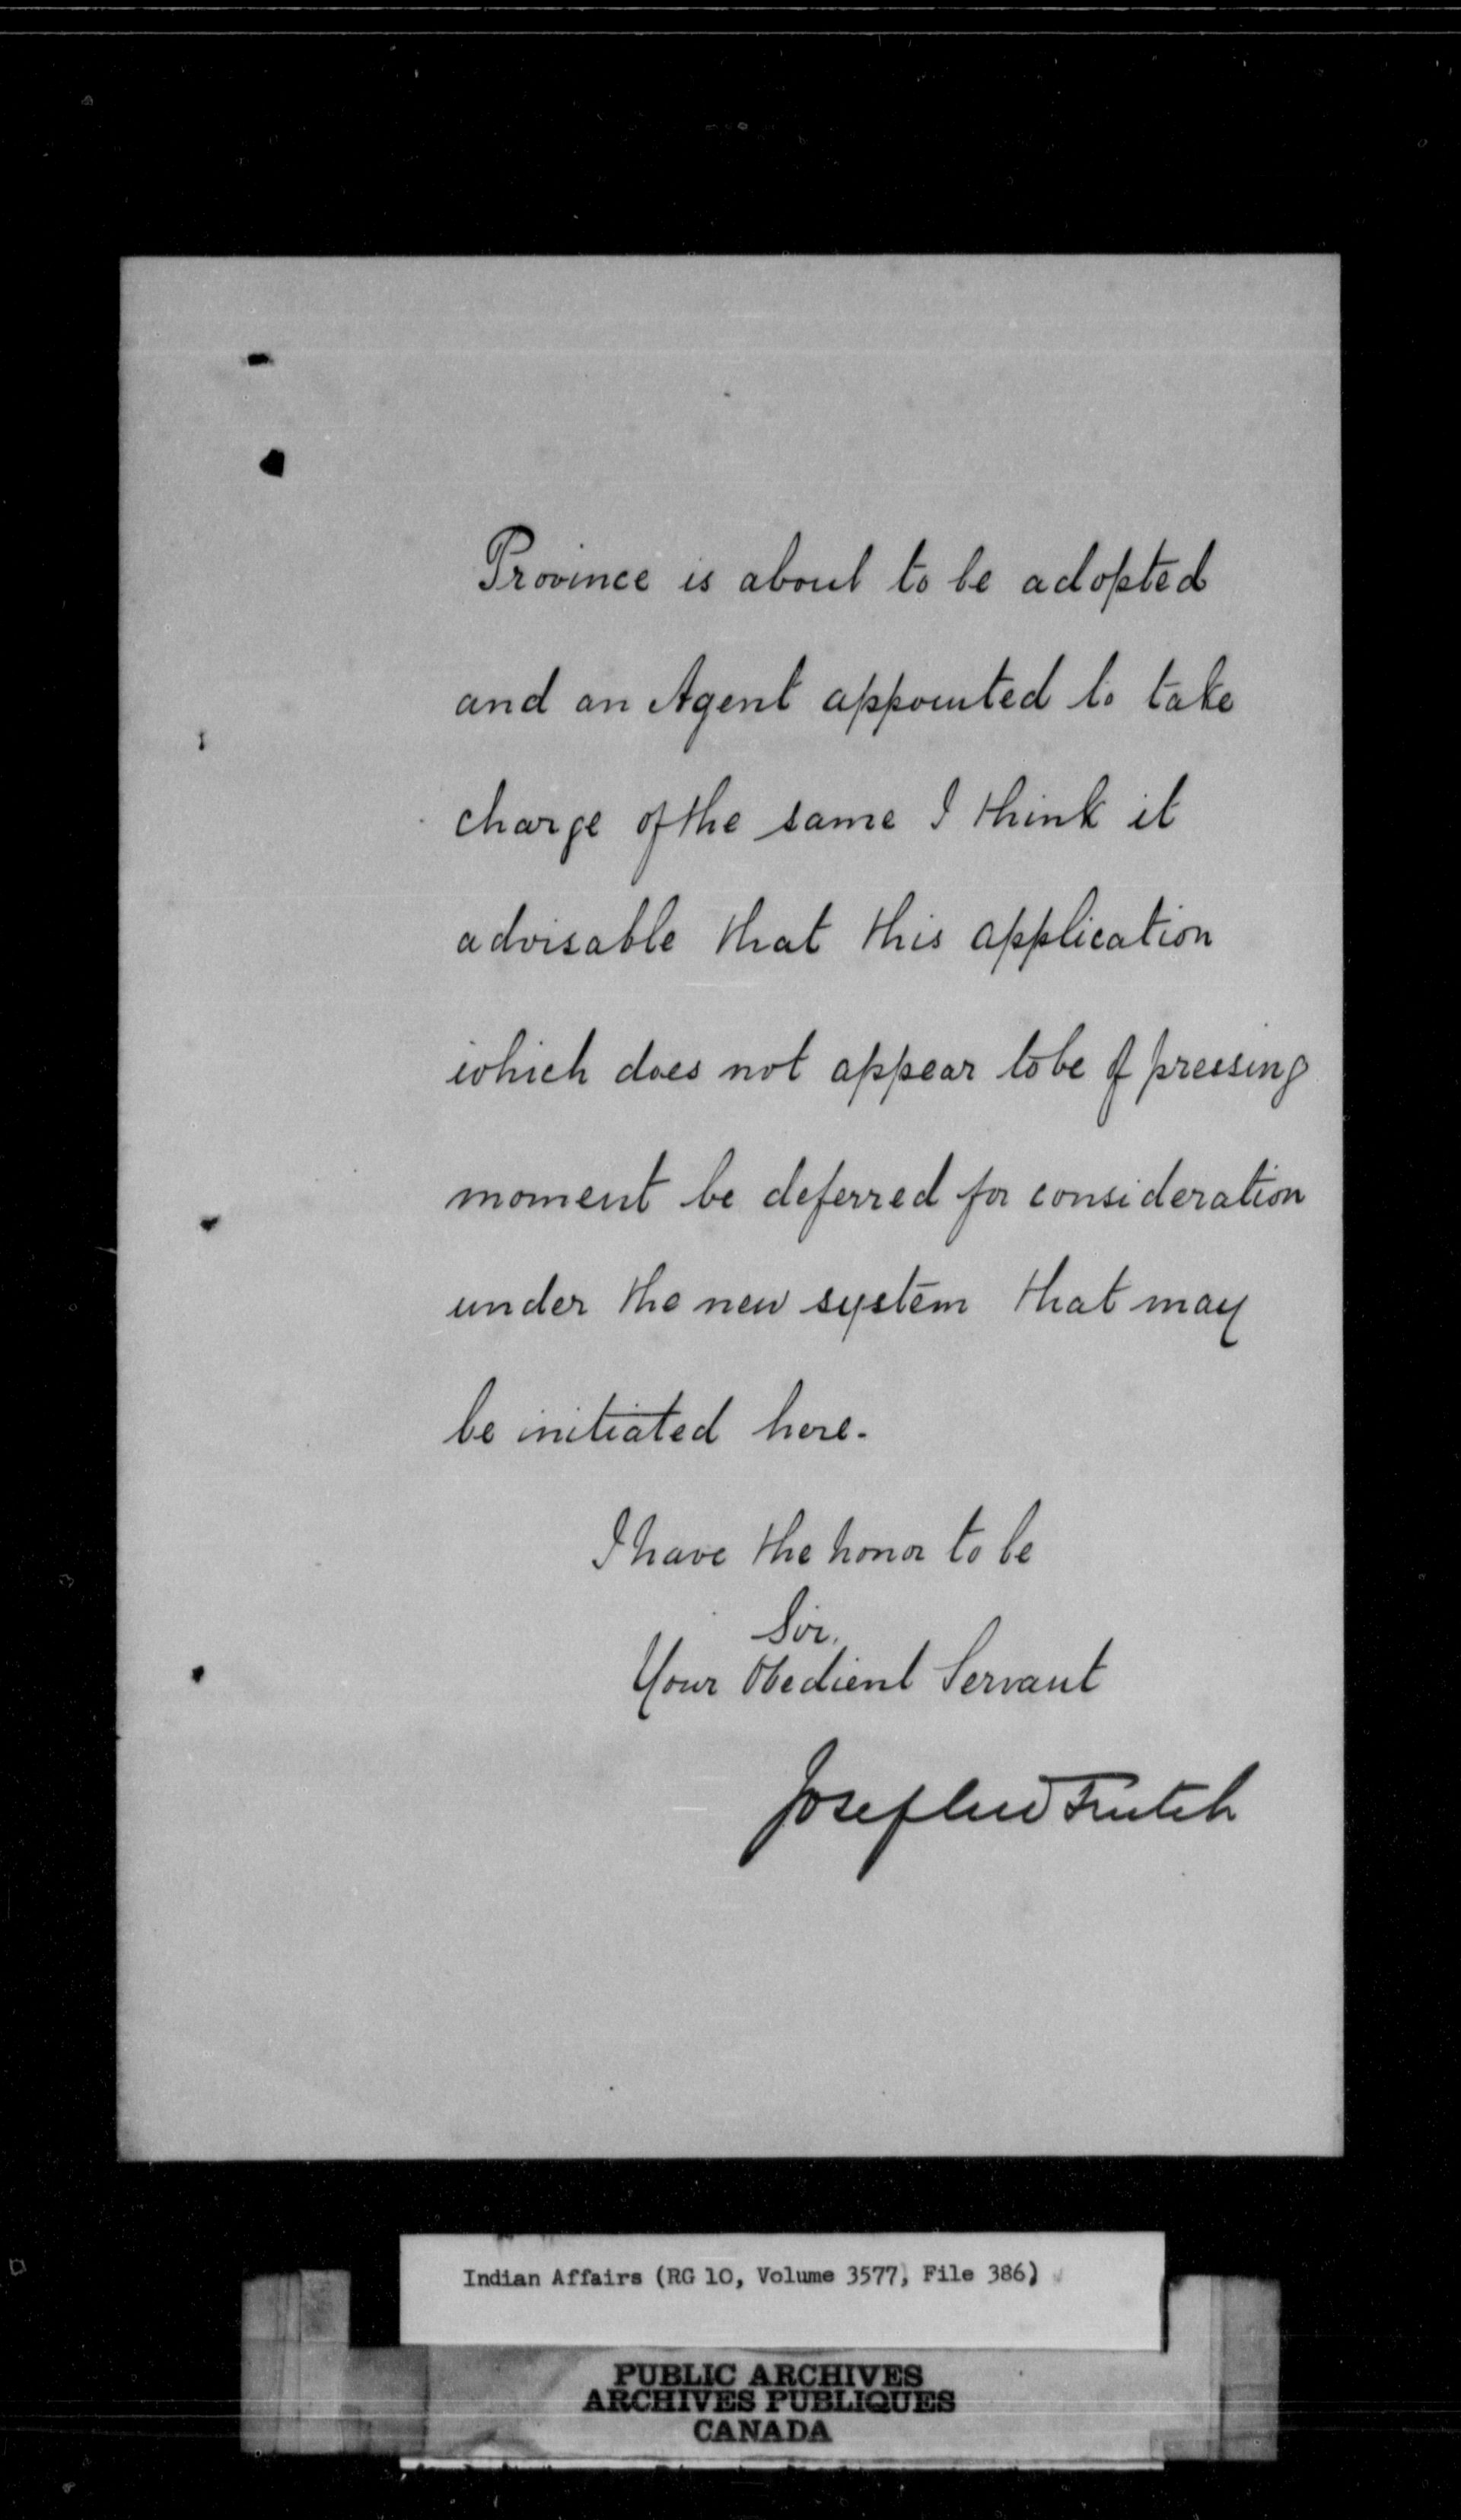 Province is about to be adopted
and an Agent appointed to take
charge of the same I think it
advisable that this application
which does not appear to be of pressing
moment be deferred for consideration
under the new system that may
be initiated here.
I have the honor to be
Sir,
Your Obedient Servant
Joseph W Trutch
Indian Affairs (RG 10, Volume 3577, File 386)
PUBLIC ARCHIVES
ARCHIVES PUBLIQUES
CANADA